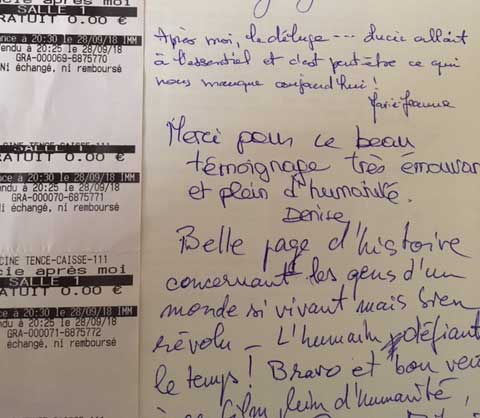 cie après moi
SALLE 1
RATUIT 0.00 €
nce à 20:30 le 28/09/18 IMM
endu à 20:25 le 28/09/18
GRA-000069-6875770
Ni échangé, ni remboursé
CINE TENCE-CAISSE-111
SALLE 1
ATUIT 0.00 €
ce à 20:30 le 28/09/18 IMM
ndu à 20:25 le 28/09/18
GRA-000070-6875771
i échangé, ni remboursé
CINE TENCE-CAISSE-111
cie après moi
SALLE 1
ATUIT 0.00 €
e à 20:30 le 28/09/18 IMM
du à 20:25 le 28/09/18
GRA-000071-6875772
échangé, ni remboursé
Après moi, le déluge --- Lucie allait
à l'essentiel et c'est peut-être ce qui
nous manque aujourd'hui !
Marie Jeanne
Merci pour ce beau
témoignage très émouvan
et plein d'humanité.
Denise
Belle page d'histoire
concernant les gens d'un
monde si vivant mais bien
révolu - L'humain défiant
le temps ! Bravo et bon ven
film plein d'humanité,